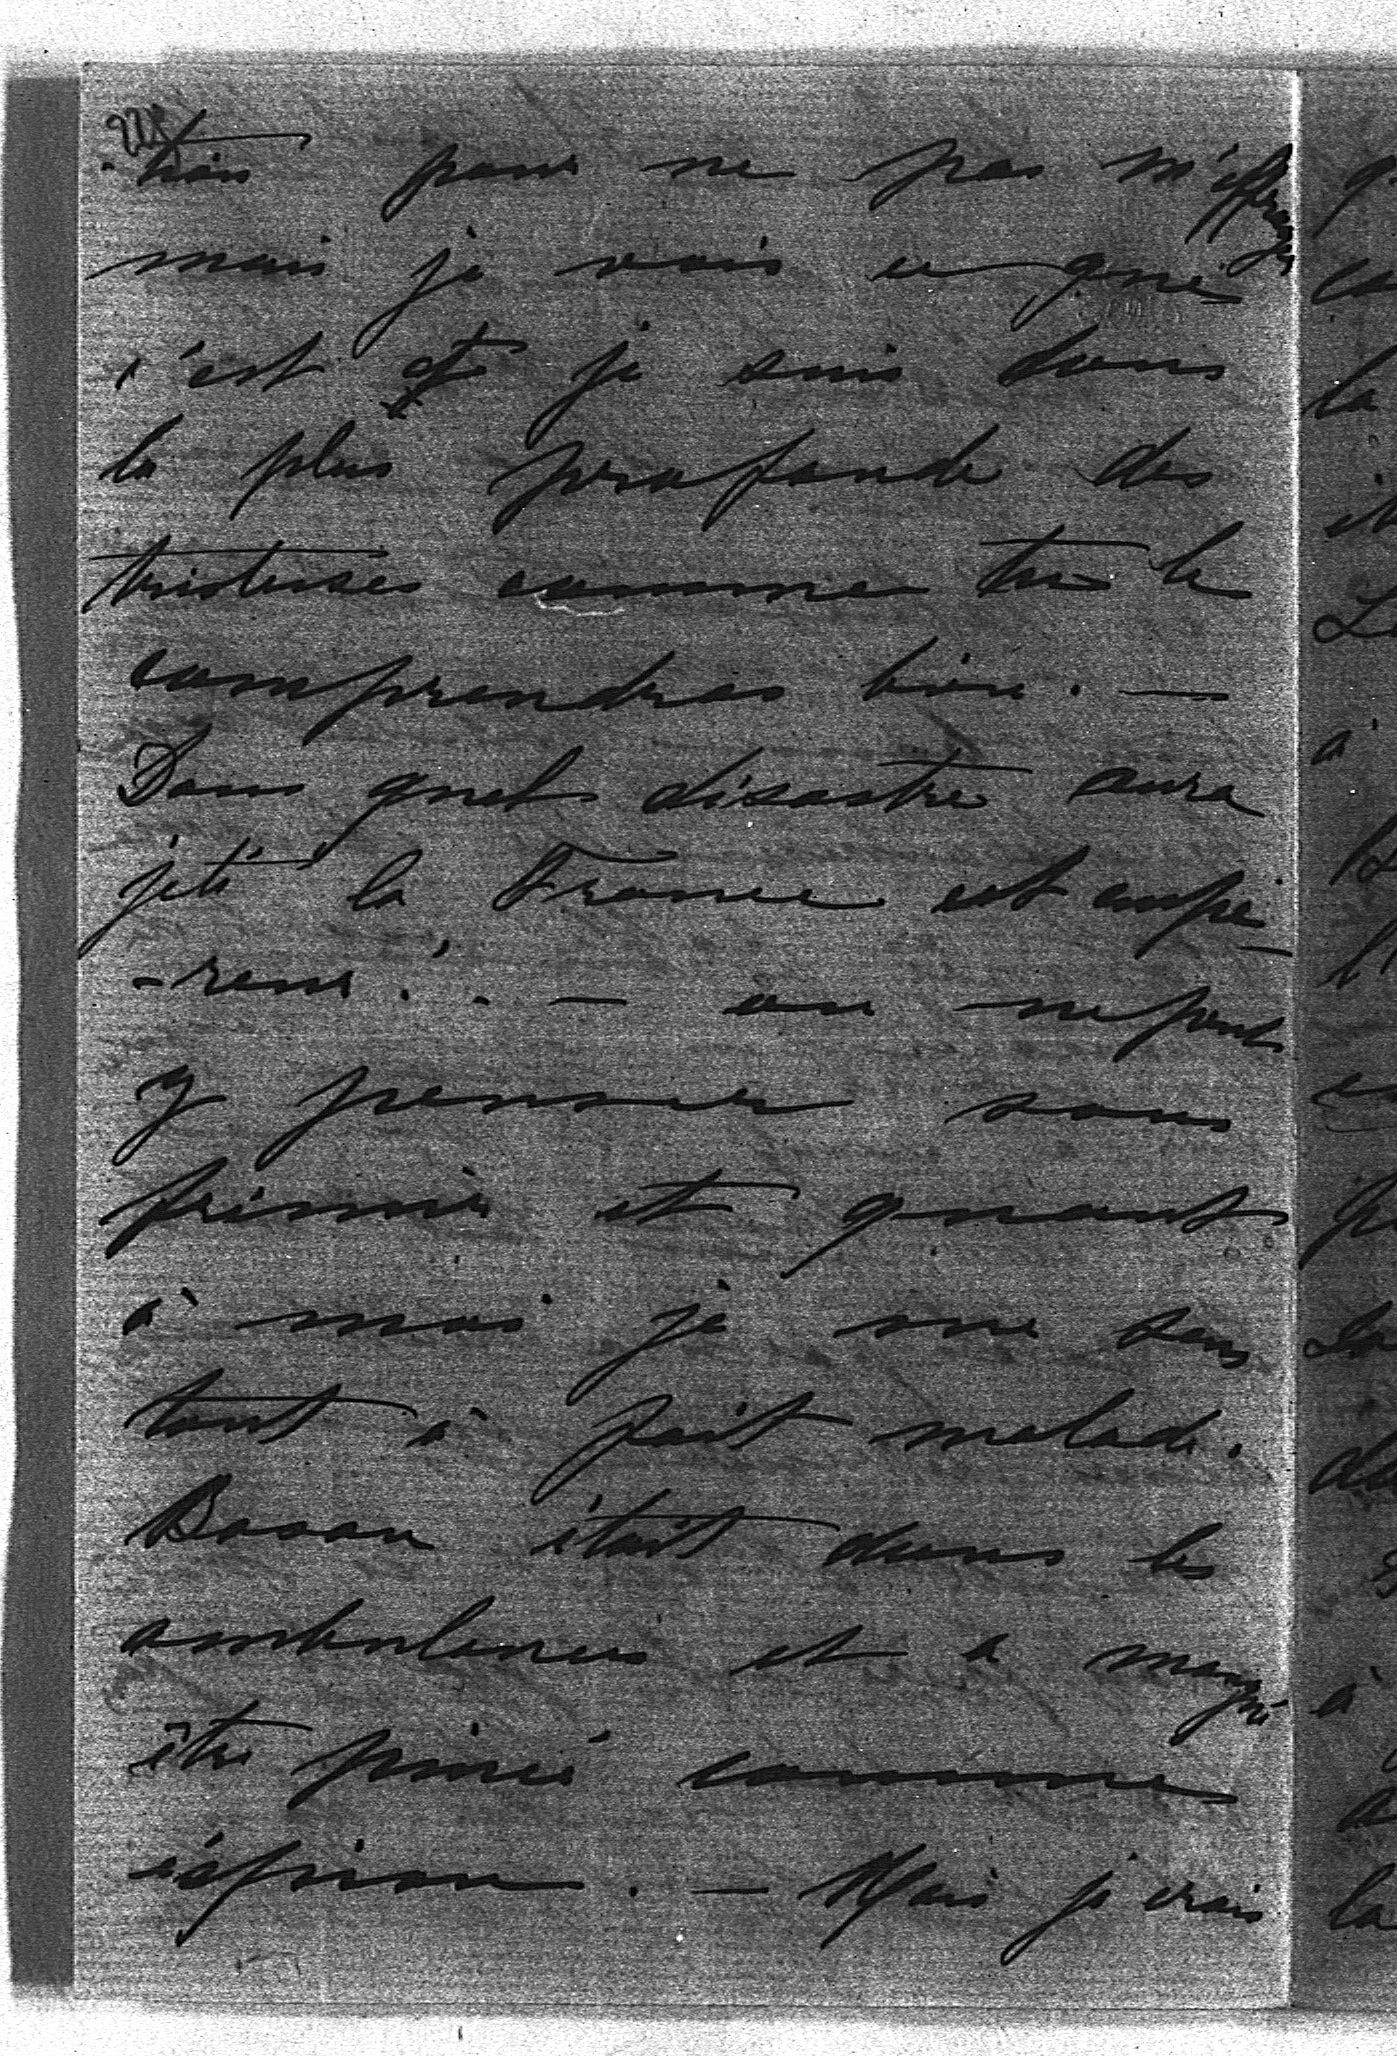 228
-tion pour ne pas m'effrayer
mais je vois ce que
c'est et je suis dans
la plus profonde des
tristesses comme tu le
comprendras bien. —
Dans quels désastre aura
jeté la France cet empe-
-reur! . — on ne peut
y penser sans
frémir et quant
à moi je me sens
tout à fait malade.
Bazou était dans les
ambulances et a manqué
être pincé comme
éspion. — Mais je crois